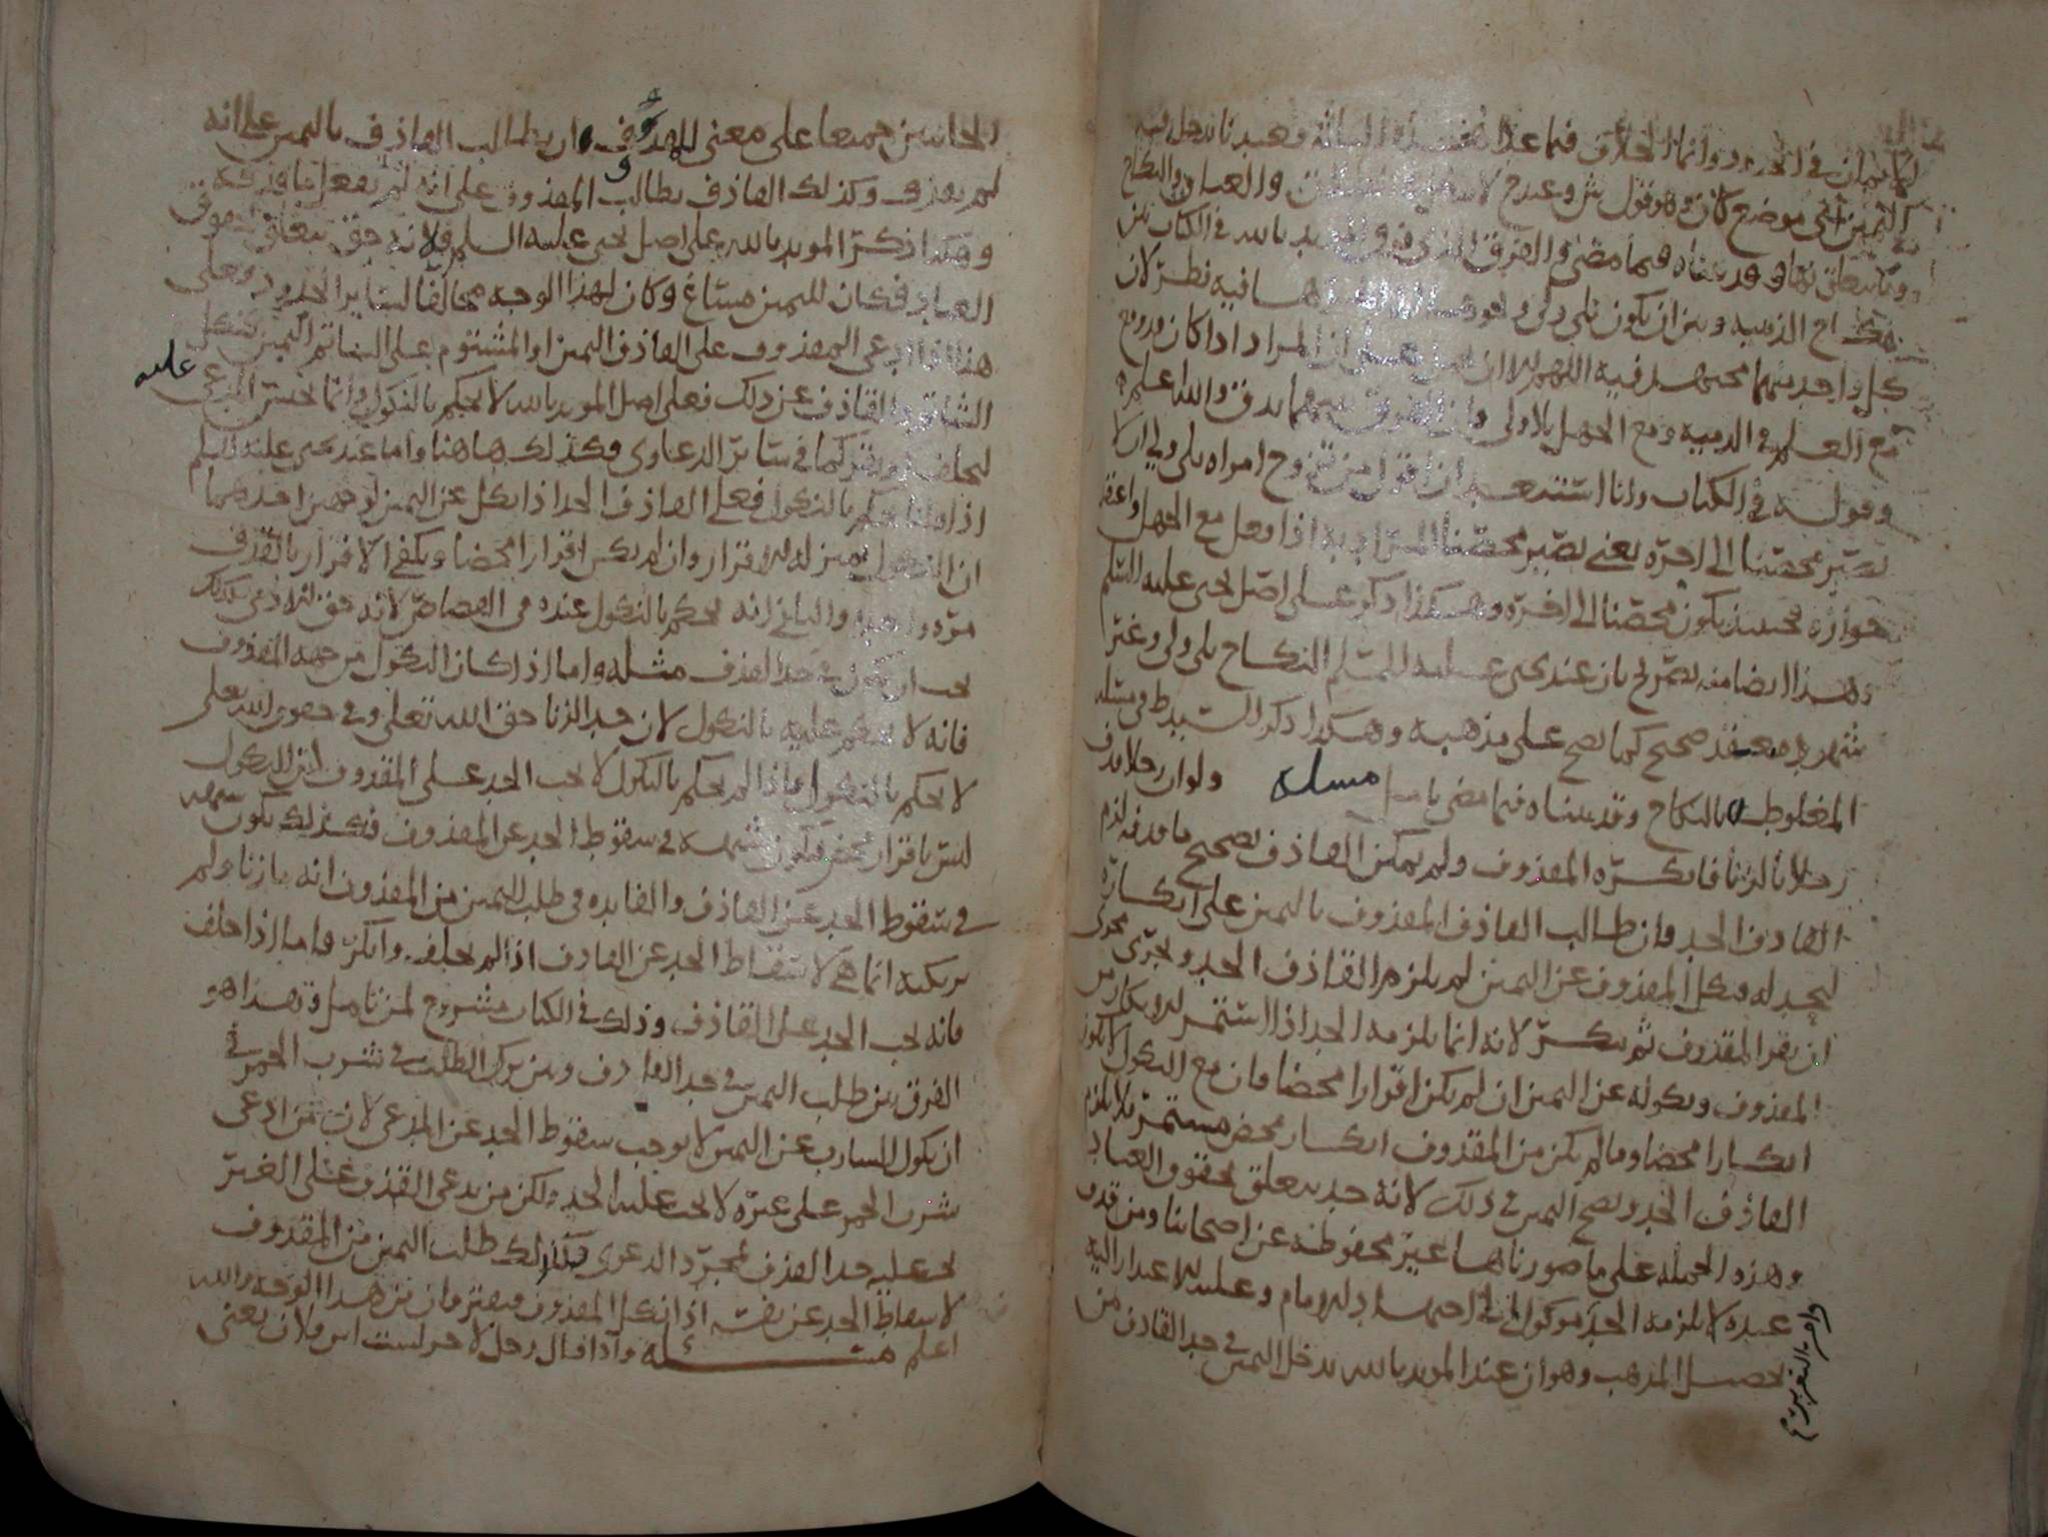 في الحدود وانما الخلاف فيما عدا هذه المسألة فعندنا تدخل فيه
اليمين في اي موضع كان وهو قول ش وعند ح لا
وما يتعلق بها وقد بيناه فيما مضى والفرق الذي والمؤيد بالله في الكتاب بين
نكاح الذمية وبين ان يكون بلى ولي وشهود فيه نظر لان
كل واحد منهما مجتهد فيه اللهم الا ان المراد اذا كان
مع العلم في الذمية ومع الجهل بلا ولي والله اعلم
وقوله في الكتاب وانا استبعد ان اقول من تزوج امراه بلى ولي ان لا
يصير محصنا الى اخره يعني يصير محصنا المراد به اذا فعل مع الجهل واعتقد
جوازه فحينئذ يكون محصنا الى اخره وهكذا ذكر على اصل يحيى عليه السلم
وهذا ايضا منه تصريح بان عند يحيى عليه السلم النكاح بلى ولي وغير
شهود صحيح كما يصح على مذهبه وهكذا ذكر السيد ط في مسئلة
المغلوط بالنكاح وقد بيناه فيما مضى مسله ولو ان رجلا قذف
رجلا بالزنا فانكره المقذوف ولم يمكن القاذف تصحيح ما قذفه لزم
القاذف الحد فان طالب القاذف المقذوف باليمين على انكاره
ليحد له فنكل المقذوف عن اليمين لم يلزم القاذف الحد ويجرى مجرى
ان يقر المقذوف ثم ينكر لانه انما يلزمه الحد اذا استمر الانكار من
المقذوف ونكوله عن اليمين ان لم يكن اقرارا محضا فان مع النكول لا يكون
انكارا محضا وما لم يكن من المقذوف انكار محض مستمر فلا يلزم
القاذف الحد وتصح اليمين في ذلك لانه حد يتعلق بحقوق العباد
وهذه الجمله على ما صورناها غير محفوظه عن اصحابنا ومن قذف
عبده لا يلزمه الحد موكول الى اجتهاد الامام وعليه الاعتذار اليه
تحصيل المذهب وهو ان عند المويد بالله تدخل اليمين في حد القاذف من
الجانبين جميعا على معنى للمقذوف ان يطالب القاذف باليمين على انه
لم يقذف وكذلك القاذف يطالب المقذوف على انه لم يفعل ما قذفه
وهكذا ذكر المويد بالله على اصل يحيى عليه السلم ولانه حق يتعلق بحقوق
العباد فكان لليمين مساغ وكان لهذا الوجه مخالفا لساير الحدود فعلى
هذا اذا ادعى المقذوف على القاذف اليمين او المشتوم على الشاتم اليمين فنكل
الشاتم والقاذف عن ذلك فعلى اصل المويد بالله لا يحكم بالنكول وانما يحبس المدعى عليه
ليحلف او يقر كما في سائر الدعاوى فكذلك هاهنا واما عند يحيى عليه السلم
اذا يحكم بالنكول فعلى القاذف الحد اذا نكل عن اليمين لوجهين احدهما
ان النكول بمنزله الاقرار وان لم يكن اقرارا محضا ويكفي الاقرار بالقذف
مره واحده والثاني انه يحكم بالنكول عنده في القصاص لانه حق لادمي فكذلك
يجب ان يكون في حد القذف مثله واما اذا كان النكول من جهه المقذوف
فانه لا يحكم عليه بالنكول لان حد الزنا حق الله تعلى وفي حقوق الله تعلى
لا يحكم بالنكول فاذا لم يحكم بالنكول لا يجب الحد على المقذوف لان النكول
ليس باقرار محض فيكون شبهه في سقوط الحد عن المقذوف فكذلك يكون شبهه
في سقوط الحد عن القاذف والفايده في طلب اليمين من المقذوف انه ما زنا ولم
يرتكبه انما هي لاسقاط الحد عن القاذف اذا لم يحلف وانكر فاما اذا حلف
فانه يجب الحد على القاذف وذلك في الكتاب مشروح لمن تامل وهذا هو
الفرق بين طلب اليمين في حد القاذف وبين ترك الطلب في شرب الخمر في
ان نكول الشارب عن اليمين لا يوجب سقوط الحد عن المدعي لان من ادعى
شرب الخمر على غيره لا يجب عليه الحد ولكن من يدعي القذف على الغير
يجب عليه حد القذف بمجرد الدعوى فكذلك طلب اليمين من المقذوف
لاسقاط الحد عن نفسه اذا نكل المقذوف فيفترقان من هذا الوجه والله
اعلم مسئلة واذا قال رجل لاخر لست ابن فلان يعني